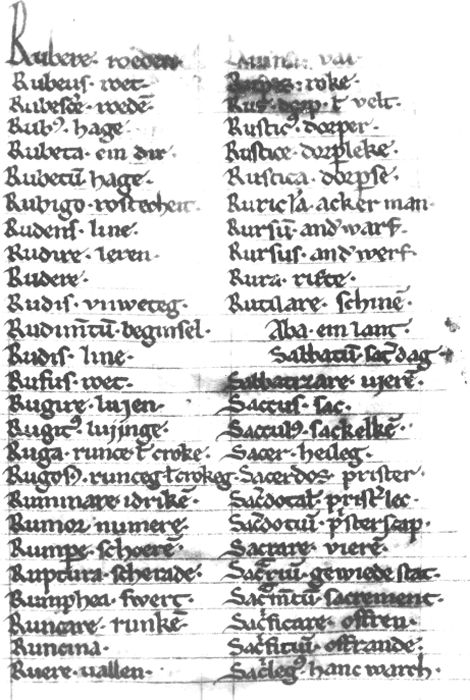 Rubere· roeden·
Rubeus· roet·
Rubesce͛· roedē·
Rubꝰ· hage·
Rubeta· ein dir·
Rubetū hage·
Rubigo· rostecheit·
Rudens· line·
Rudire· leren·
Rudere·
Rudis· vnweteg·
Rudimt̄ū· beginsel·
Rudis· line·
Rufus· roet·
Rugire· lujen·
Rugitꝰ· lujinge·
Ruga· runce ł croke·
Rugosꝰ· runceg ł crokeg·
Ruminare· idrikē·
Rumor· numere·
Rumpe͛· schoerē·
Ruptura· scherade·
Rumphea· swert·
Runcare· runkē·
Runcina·
Ruere· vallen·
val·
roke·
Rus· dorp ł velt·
Rusticꝰ· dorper·
Rustice· dorpleke·
Rustica· dorpse·
Ruricla· acker man·
Rursū· and'warf·
Rursus· and'werf·
Rura·
Rutilare· schinē·
Aba· ein lant·
Sabbatū· sat͛dag·
Sabbatizare· vierē·
Saccus· sac·
Sacculꝰ· sackelkē·
Sacer· heileg·
Sacerdos· prister·
Sac͛dotal͛· prist͛lec·
Sac͛dotiū· p͛sterscap·
Sacrare· vierē·
Sac͛riū· gewiede stat·
Sac͛mt̄ū· sacrement·
Sac͛ficare· offren·
Sac͛ficiū· offrande·
Sac͛legꝰ· hanc warch·